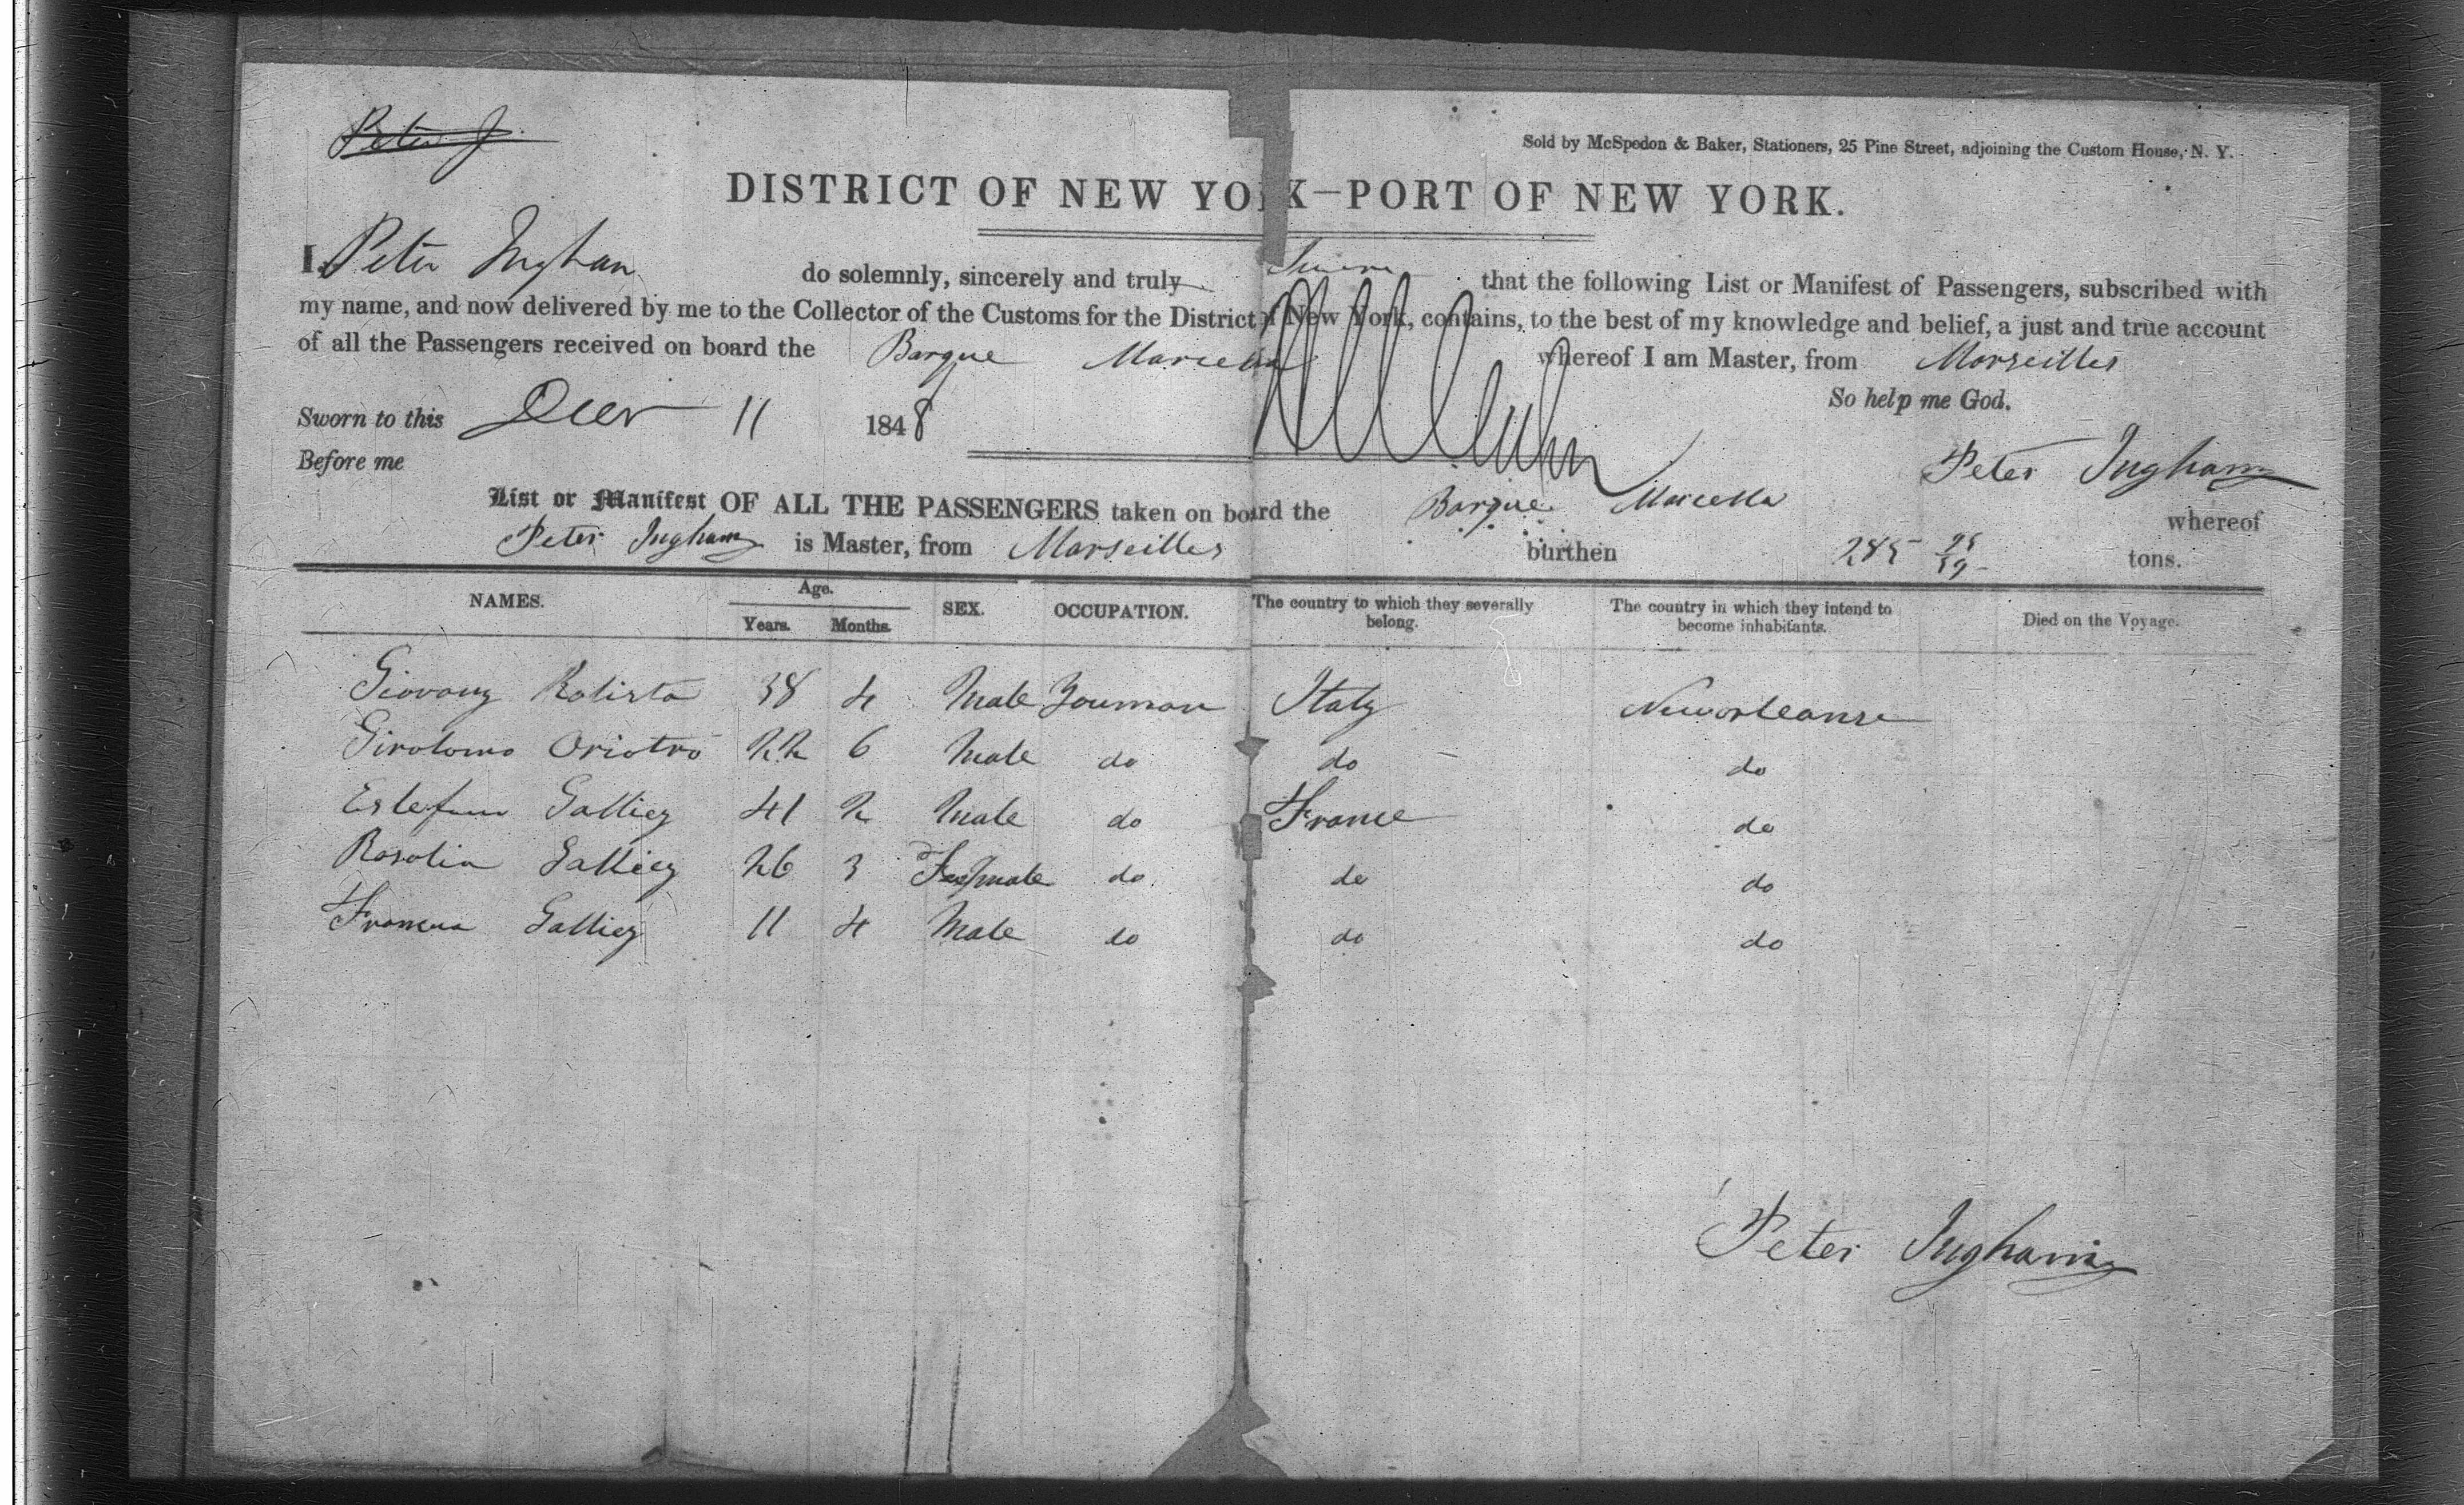 Peter J
Sold by McSpedon & Baker, Stationers, 25 Pine Street, adjoining the Custom House, N. Y.
DISTRICT OF NEW YORK—PORT OF NEW YORK.
I, Peter Ingham do solemnly, sincerely and truly Swear that the following List or Manifest of Passengers, subscribed with
my name, and now delivered by me to the Collector of the Customs for the District of New York, contains, to the best of my knowledge and belief, a just and true account
of all the Passengers received on board the Barque Marcella whereof I am Master, from Marseilles
So help me God.
Sworn to this Decr 11 1848
Peter Ingham
Before me
List or Manifest OF ALL THE PASSENGERS taken on board the Barque Marcella whereof
Peter Ingham is Master, from Marseilles burthen 285 tons.
NAMES. Age. Years. Months. SEX. OCCUPATION. The country to which they severally belong. The country in which they intend to become inhabitants. Died on the Voyage.
Giovany Batista 38 4 Male Youman Italy Neworleanse
Girolomo Oriotro 22 6 Male do do do
Estefun Galliey 41 2 Male do France do
Rosolia Galliey 26 3 Female do do do
Galliey 11 4 Male do do do
Peter Ingham